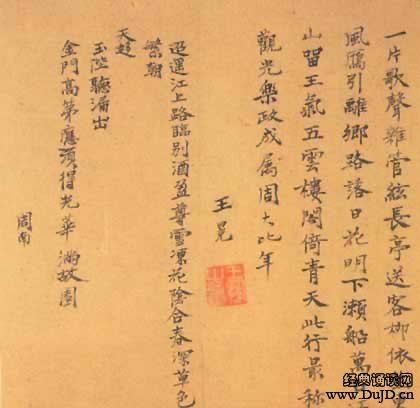 一片歌聲雜管絃長亭送客柳依
風鴈引離鄉路落日花明下瀨船萬
山留王氣五雲樓閣倚青天此行最称
觀光樂政成属周大比年
王冕
迢遞江上路臨別酒盈尊雪凍花陰合春深草色
繁朝
天趍
玉陛聽漏出
金門高第應須得光華滿故園
周南
经典诵读网
www.DuJD.cn